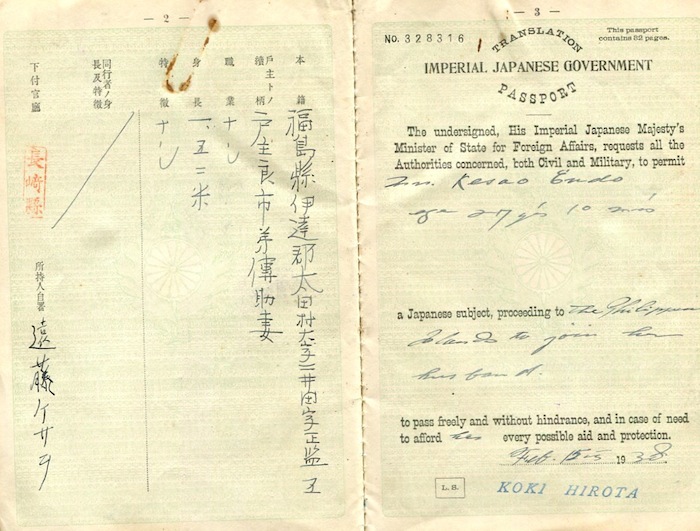 — 2 —
本籍
福島縣伊達郡太田村大字二井田字正監五
戸主トノ續柄
戸主良市弟傳助妻
職業
ナシ
身長
一、五二米
特徴
ナシ
同行者ノ身長及特徴
下付官廳
長崎縣
所持人自署
遠藤ケサヲ
— 3 —
No. 328316
This passport
contains 32 pages.
TRANSLATION
IMPERIAL JAPANESE GOVERNMENT
PASSPORT
The undersigned, His Imperial Japanese Majesty's
Minister of State for Foreign Affairs, requests all the
Authorities concerned, both Civil and Military, to permit
Mrs. Kesao Endo
age 27 y's 10 m's
a Japanese subject, proceeding to The Philippine
Islands to join her
husband.
to pass freely and without hindrance, and in case of need
to afford her every possible aid and protection.
Feb. 1938
L. S.
KOKI HIROTA